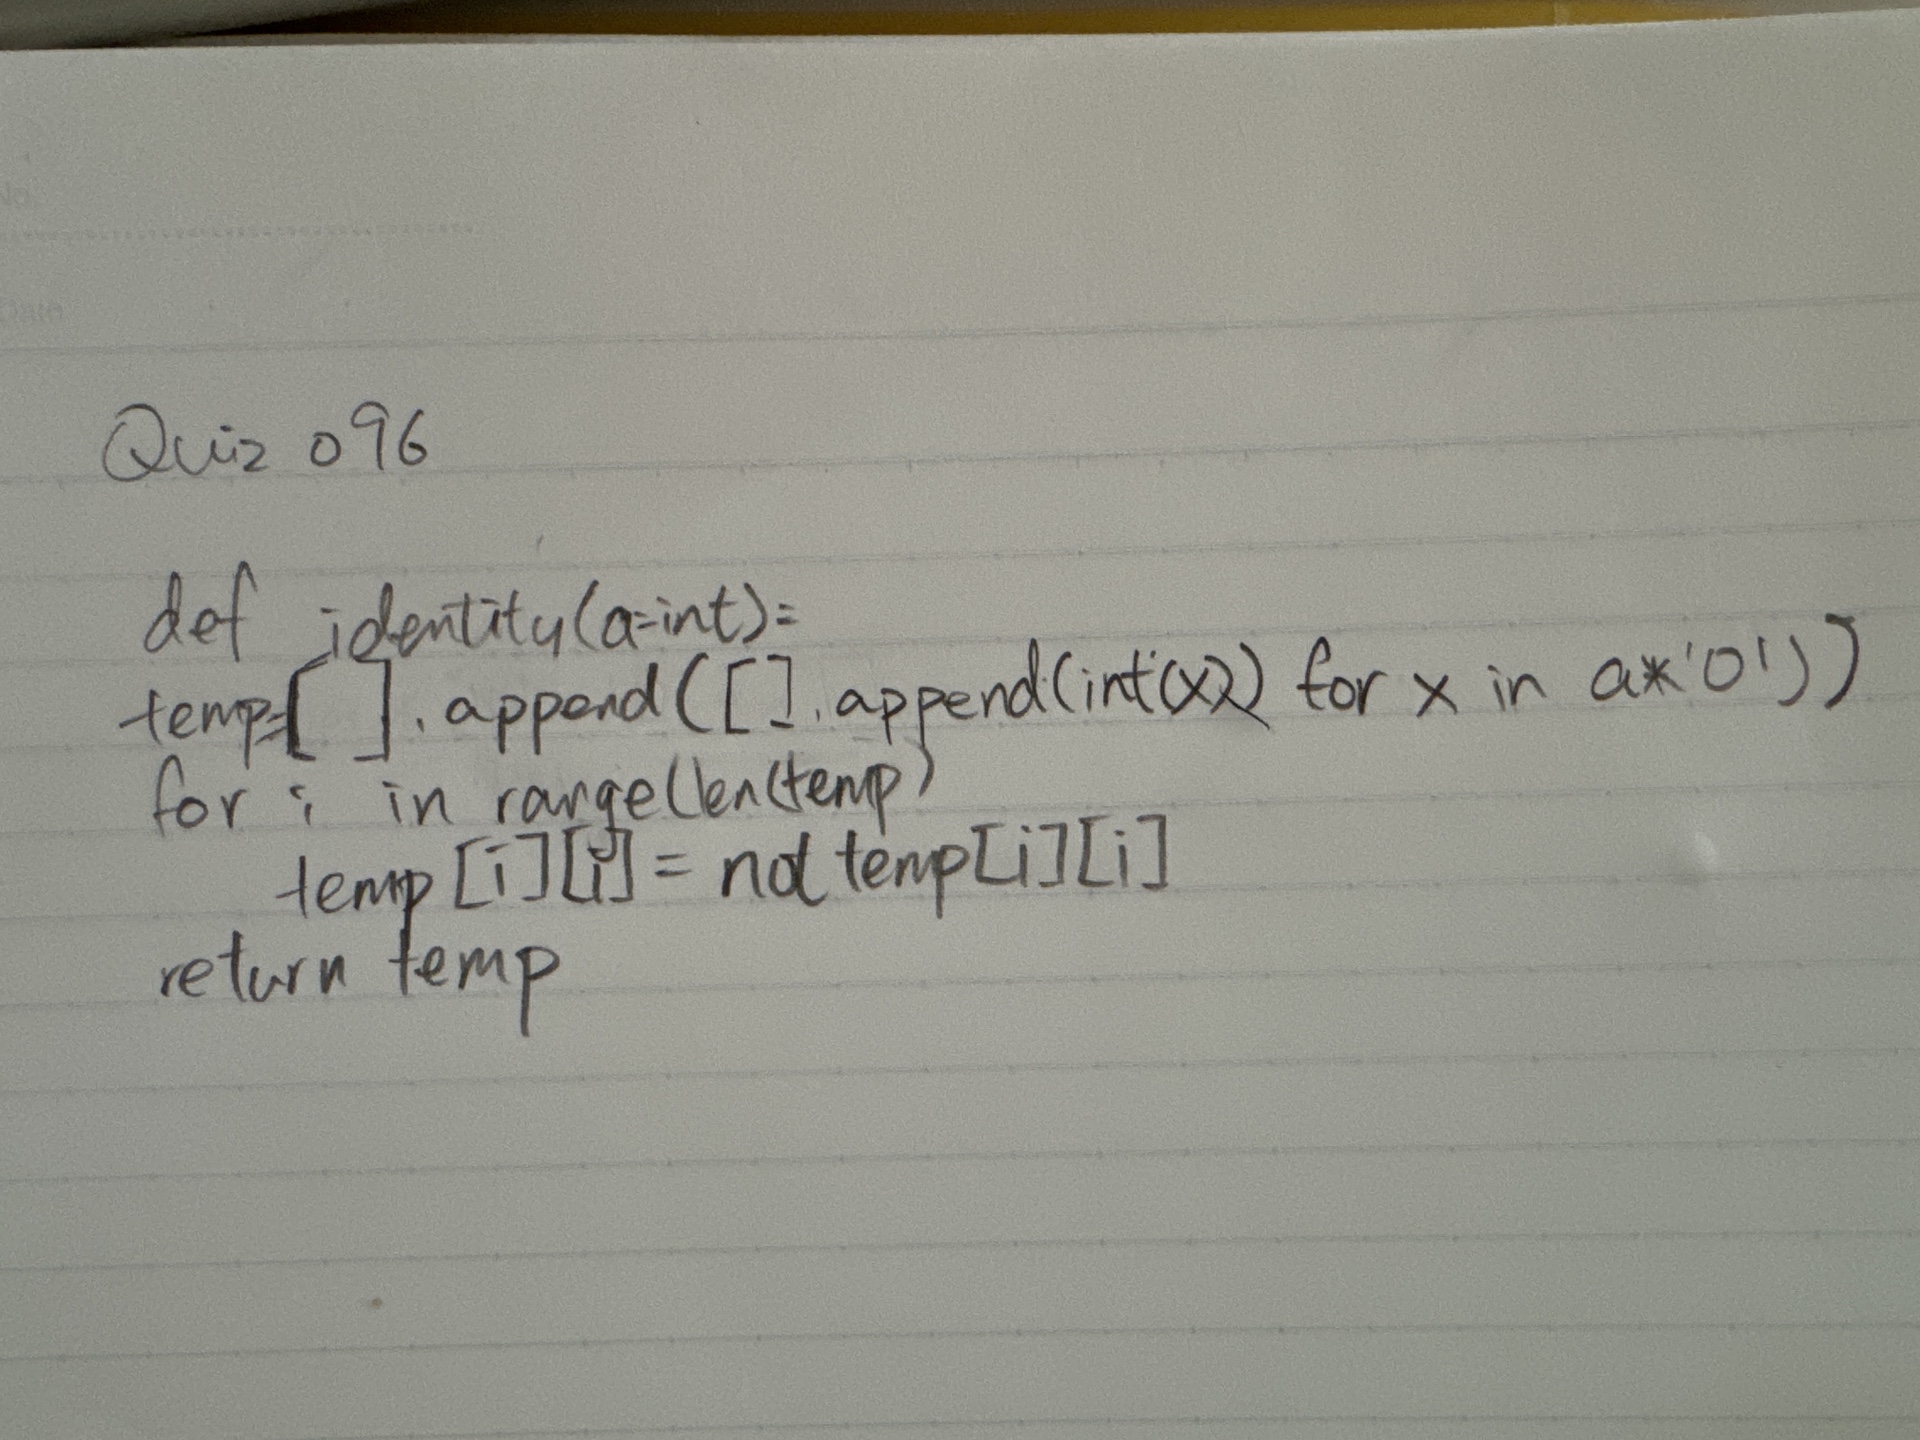 No.
Date
Quiz 096
def identity(a=int)=
temp=[ ].append([].append(int(x)) for x in a*'0'))
for i in range(len(temp)
temp[i][i]= not temp[i][i]
return temp